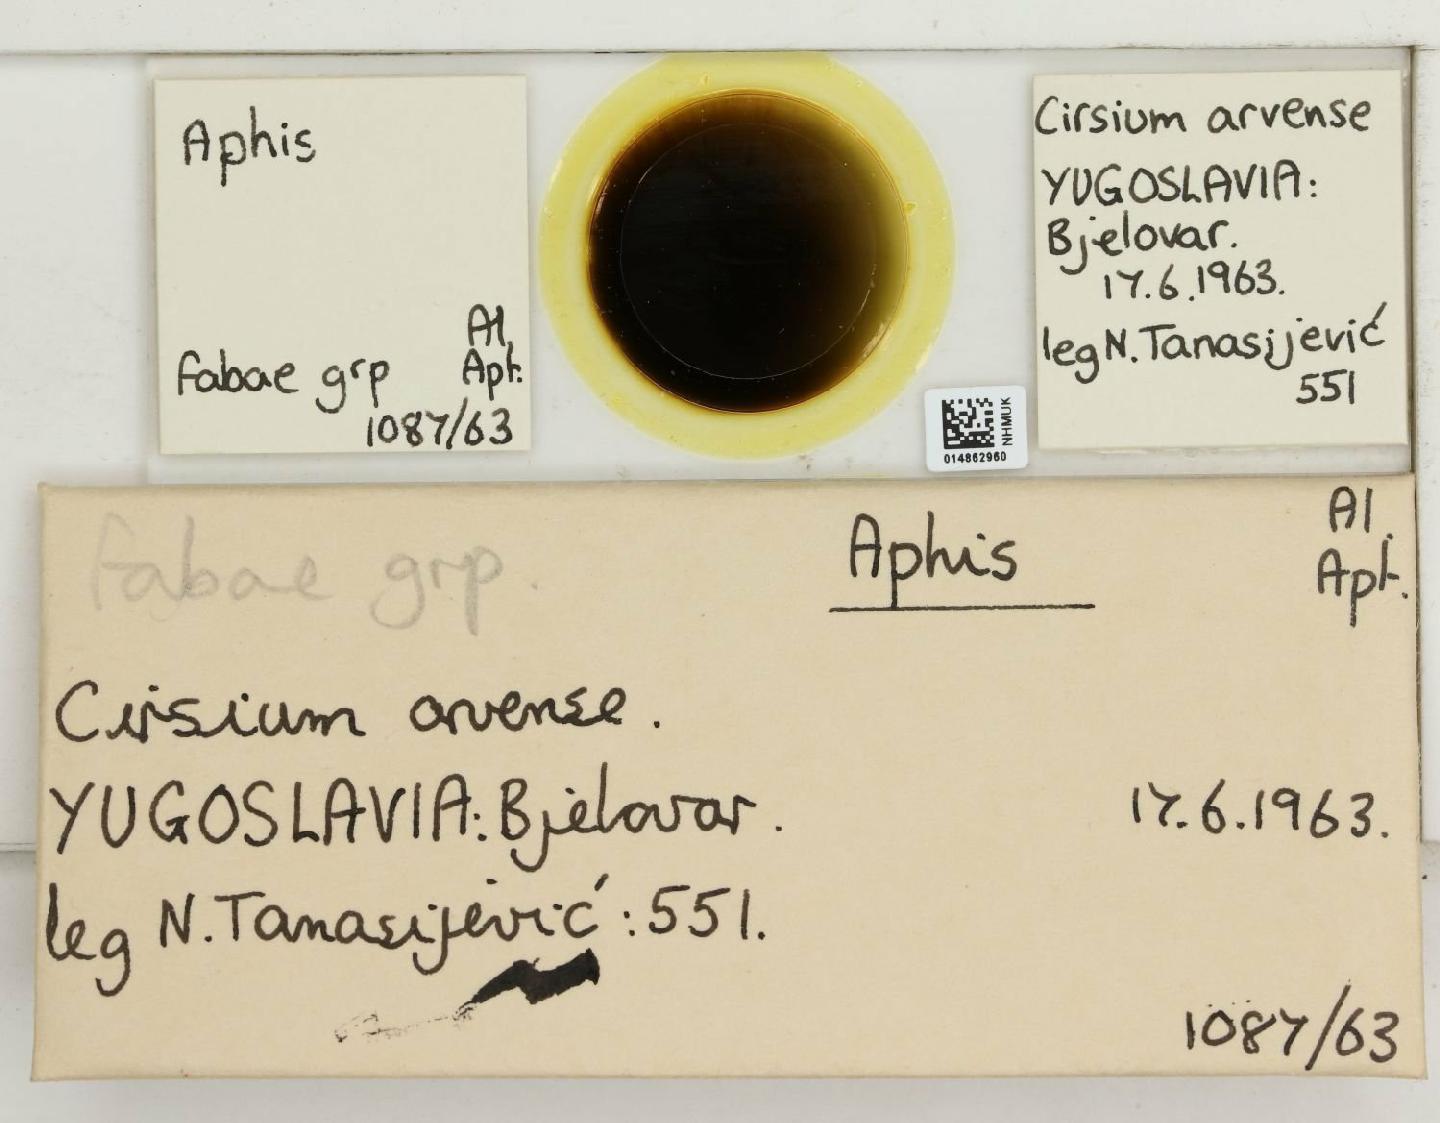 Aphis
Al.
fabae grp Apt.
1087/63
NHMUK
014862960
Cirsium arvense
YUGOSLAVIA:
Bjelovar.
17.6.1963.
leg N. Tanasijević
551
fabae grp.
Aphis
Al.
Apt.
Cirsium arvense.
YUGOSLAVIA: Bjelovar. 17.6.1963.
leg N. Tanasijević: 551.
1087/63